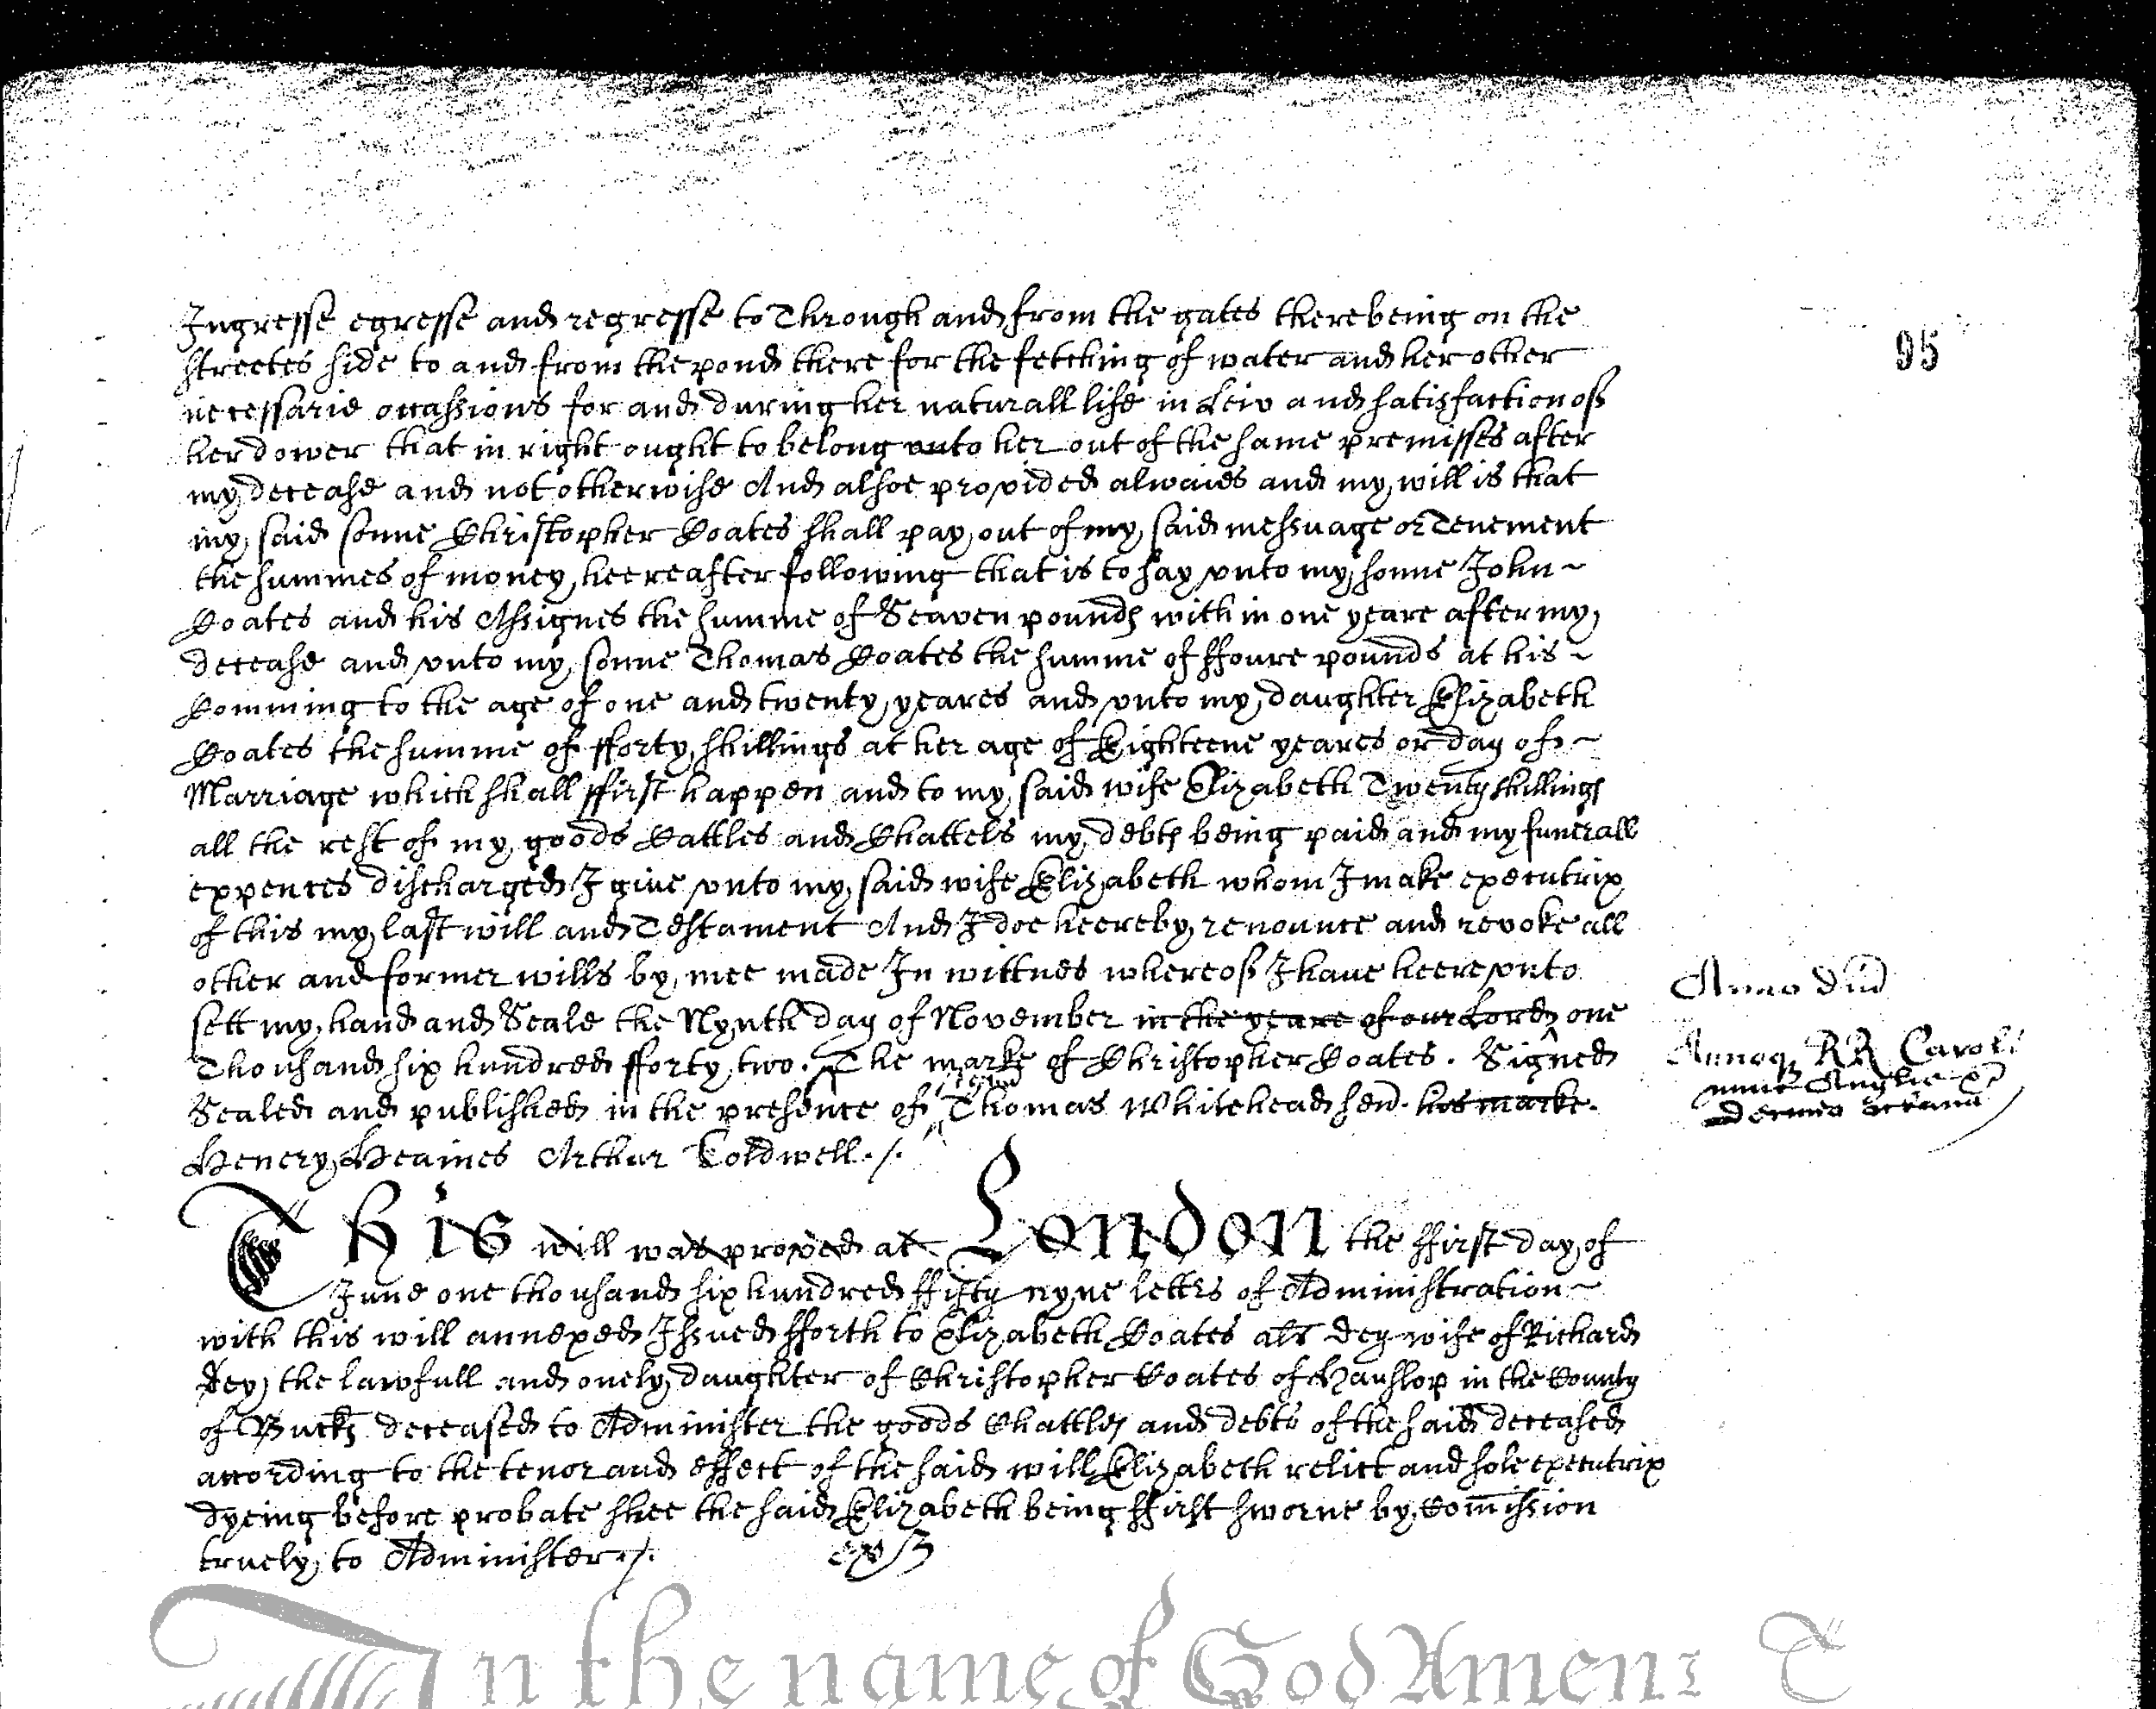 Ingresse egresse and regresse to Through and from the gates there being on the
95
streetes side to and from the pond there for the fetching of water and her other
necessarie occassions for and during her naturall life in Leiv and satisfaction of
her dower that in right ought to belong unto her out of the same premisses after
my decease and not otherwise And alsoe provided alwaies and my will is that
my said sonne Christopher Coates shall pay out of my said messuage or Tenement
the summes of money heereafter following that is to say vnto my sonne John ~
Coates and his Assignes the summe of Seaven pounds with in one yeare after my
decease and vnto my sonne Thomas Coates the summe of ffoure pounds at his ~
Comming to the age of one and twenty yeares and vnto my daughter Elizabeth
Coates the summe of fforty shillings at her age of Eighteene yeares or day of ~
Marriage which shall ffirst happen and to my said wife Elizabeth Twenty shillings
all the rest of my goods Cattles and Chattels my debts being paid and my funerall
expences discharged I give vnto my said wife Elizabeth whom I make executrix
of this my last will and Testament And I doe heereby renounce and revoke all
other and former wills by mee made In wittnes whereof I have heere vnto
sett my hand and Seale the Nynth day of November in the yeare of our Lord one
Anno Dni
Thousand six hundred fforty two. The marke of Christopher Coates. Signed
Annoq RR Caroli
nunc Anglie &c
decimo Octavo
Sealed and published in the presence of Thomas Whitehead sen. his marke.
Henery Heaines Arthur Coldwell ./.
This will was proved at London the ffirst day of
June one thousand six hundred ffifty nyne lettrs of Administration ~
with this will annexed Issued fforth to Elizabeth Coates als Dey wife of Richard
Dey the lawfull and onely daughter of Christopher Coates of Hanslop in the County
of Bucks deceased to Administer the goods Chattles and debts of the said deceased
according to the tenor and effect of the said will Elizabeth relict and sole executrix
dyeing before probate shee the said Elizabeth being ffirst sworne by Comission
truely to Administer ./.
In the name of God Amen